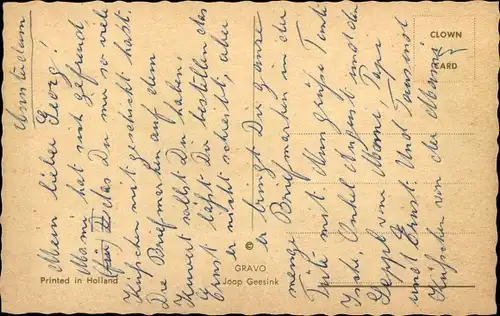 Amsterdam
Mein lieber Georg!
Mami hat sich gefreut,
das Du mir so viele
Küsschen mit geschickt hast.
Die Briefmarken auf dem
Kuvert sollst Du haben.
Ernst lässt Dir bestellen das
er nicht schreibt, aber
er bringt Dir ganze
menge Briefmarken in der
Tüte mit. Nun grüsse Tante
Onkel August und der
Seppl von Mami, Papi
und Ernst. Und Tausend
Küsschen von der Mami
CLOWN
CARD
©
GRAVO
Printed in Holland
Joop Geesink